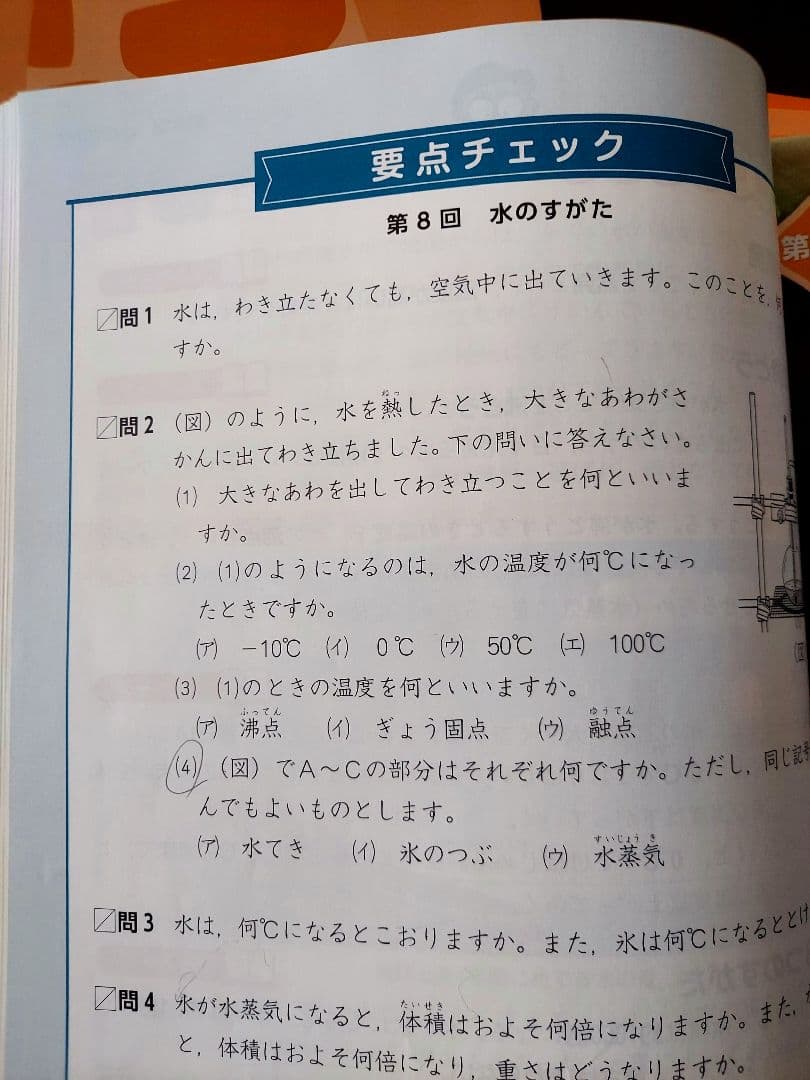 要点チェック
第8回 水のすがた
問1 水は，わき立たなくても，空気中に出ていきます。このことを，
すか。
問2 （図）のように，水を熱したとき，大きなあわがさ
かんに出てわき立ちました。下の問いに答えなさい。
(1) 大きなあわを出してわき立つことを何といいま
すか。
(2) (1)のようになるのは，水の温度が何℃になっ
たときですか。
(ア) －10℃ (イ) 0℃ (ウ) 50℃ (エ) 100℃
(3) (1)のときの温度を何といいますか。
(ア) 沸点 (イ) ぎょう固点 (ウ) 融点
(4) （図）でA～Cの部分はそれぞれ何ですか。ただし，同じ記号
んでもよいものとします。
(ア) 水てき (イ) 氷のつぶ (ウ) 水蒸気
問3 水は，何℃になるとこおりますか。また，氷は何℃になるととけ
問4 水が水蒸気になると，体積はおよそ何倍になりますか。また，
と，体積はおよそ何倍になり，重さはどうなりますか。
第